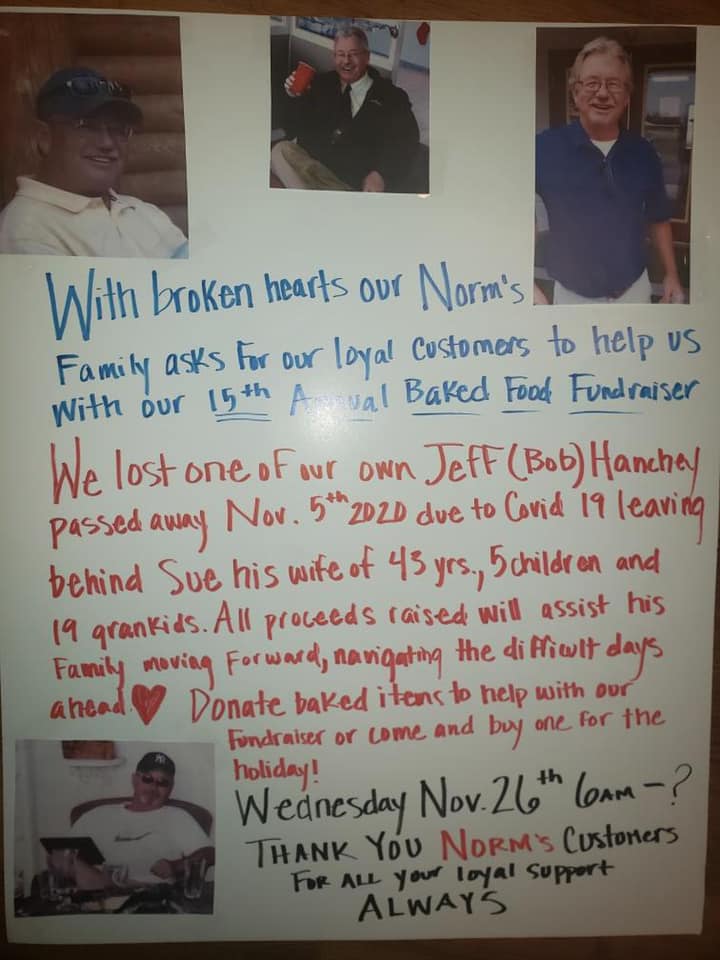 With broken hearts our Norm's
Family asks For our loyal Customers to help us
With our 15th Annual Baked Food Fundraiser
We lost one of our own Jeff (Bob) Hanchey
passed away Nov. 5th 2020 due to Covid 19 leaving
behind Sue his wife of 43 yrs., 5 children and
19 grankids. All proceeds raised will assist his
Family moving Forward, navigating the difficult days
ahead. ♥ Donate baked items to help with our
Fundraiser or come and buy one for the
holiday!
Wednesday Nov. 26th 6AM - ?
THANK YOU NORM'S Customers
FOR ALL your loyal support
ALWAYS